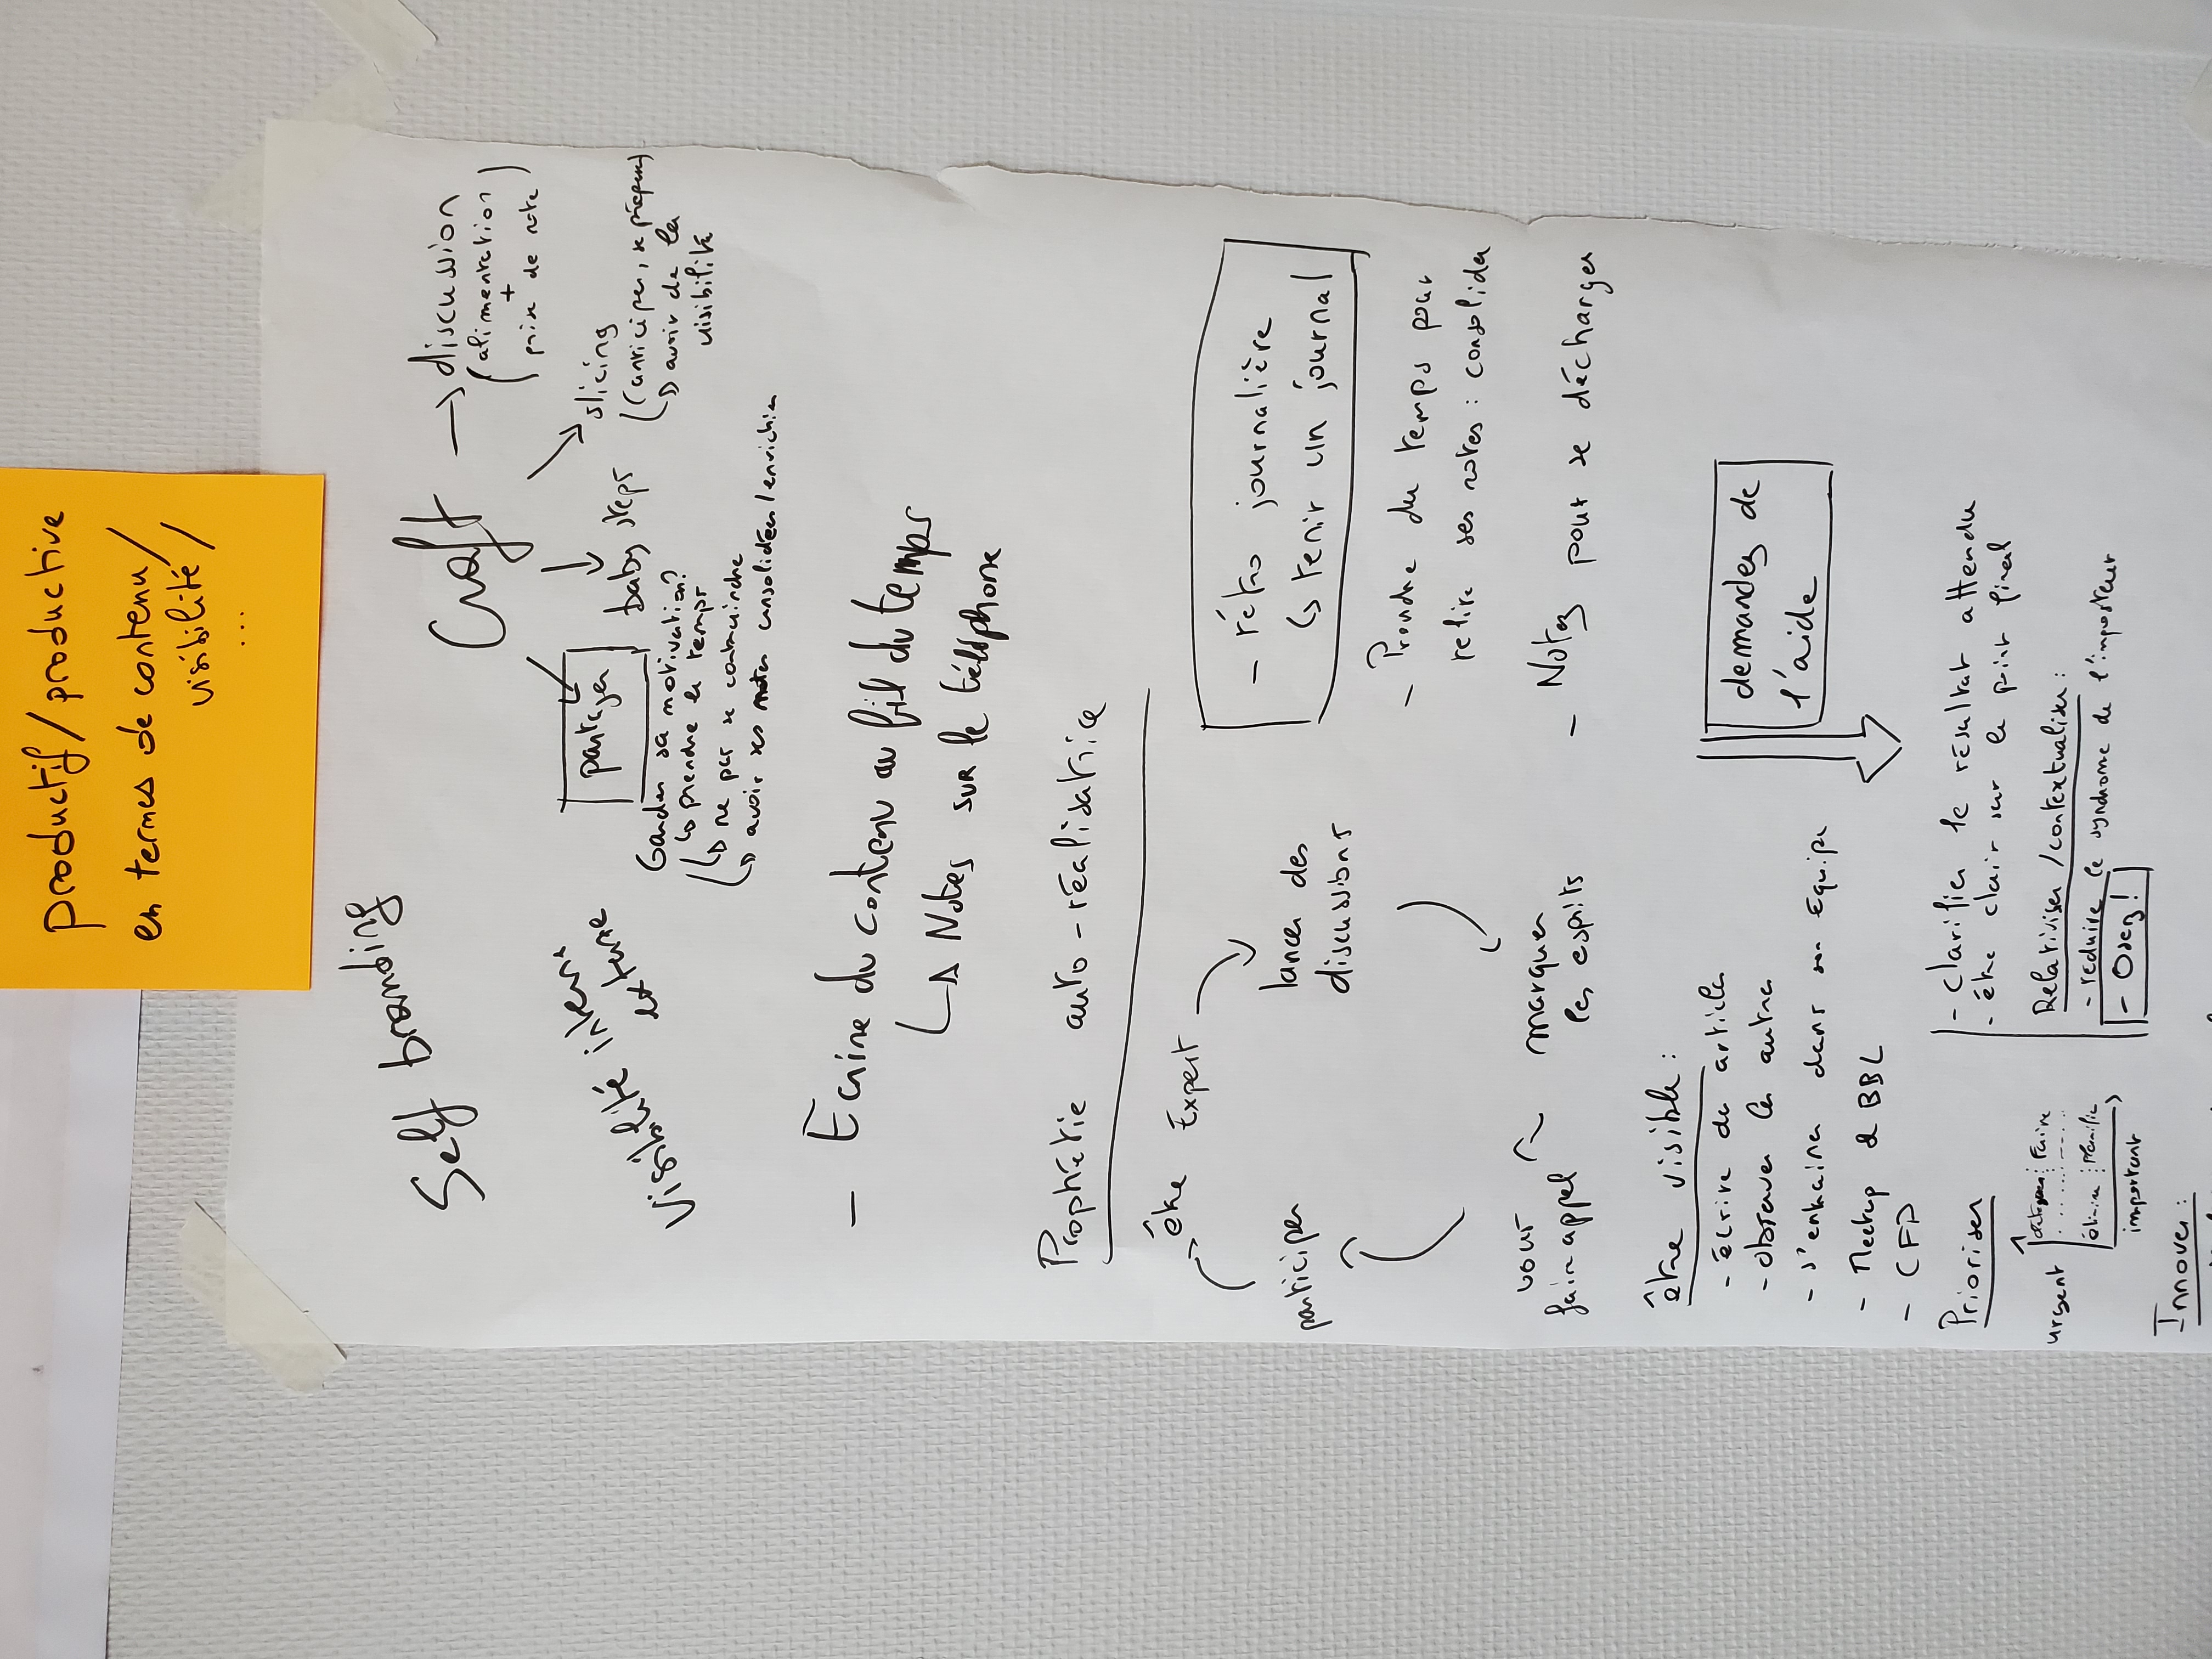 productif/productive
en termes de contenu/
visibilité/
...
Self branding
Craft
→ discussion
(alimentation
+
prise de note)
visibilité interne
externe
partager
baby steps
slicing
(anticiper, se préparer)
↳ avoir de la
visibilité
Garder sa motivation?
↳ prendre le temps
↳ ne pas se contraindre
↳ avoir ses notes consolidées/enrichies
- Ecrire du contenu au fil du temps
↳ Notes sur le téléphone
Prophétie auto-réalisatrice
être Expert
participer
lancer des
discussions
vous
faire appel
marquer
les esprits
- rétro journalière
↳ tenir un journal
- Prendre du temps pour
relire ses notes : consolider
- Notez pour se décharger
être visible :
- écrire des articles
- observer les autres
- s'entrainer dans son équipe
- Meetup & BBL
- CFP
demandez de
l'aide
Prioriser
urgent
Faire
élimine
Planifier
important
- clarifier le résultat attendu
- être clair sur le point final
Relativiser /contextualiser :
- réduire le syndrome de l'imposteur
- Osez !
Innover :